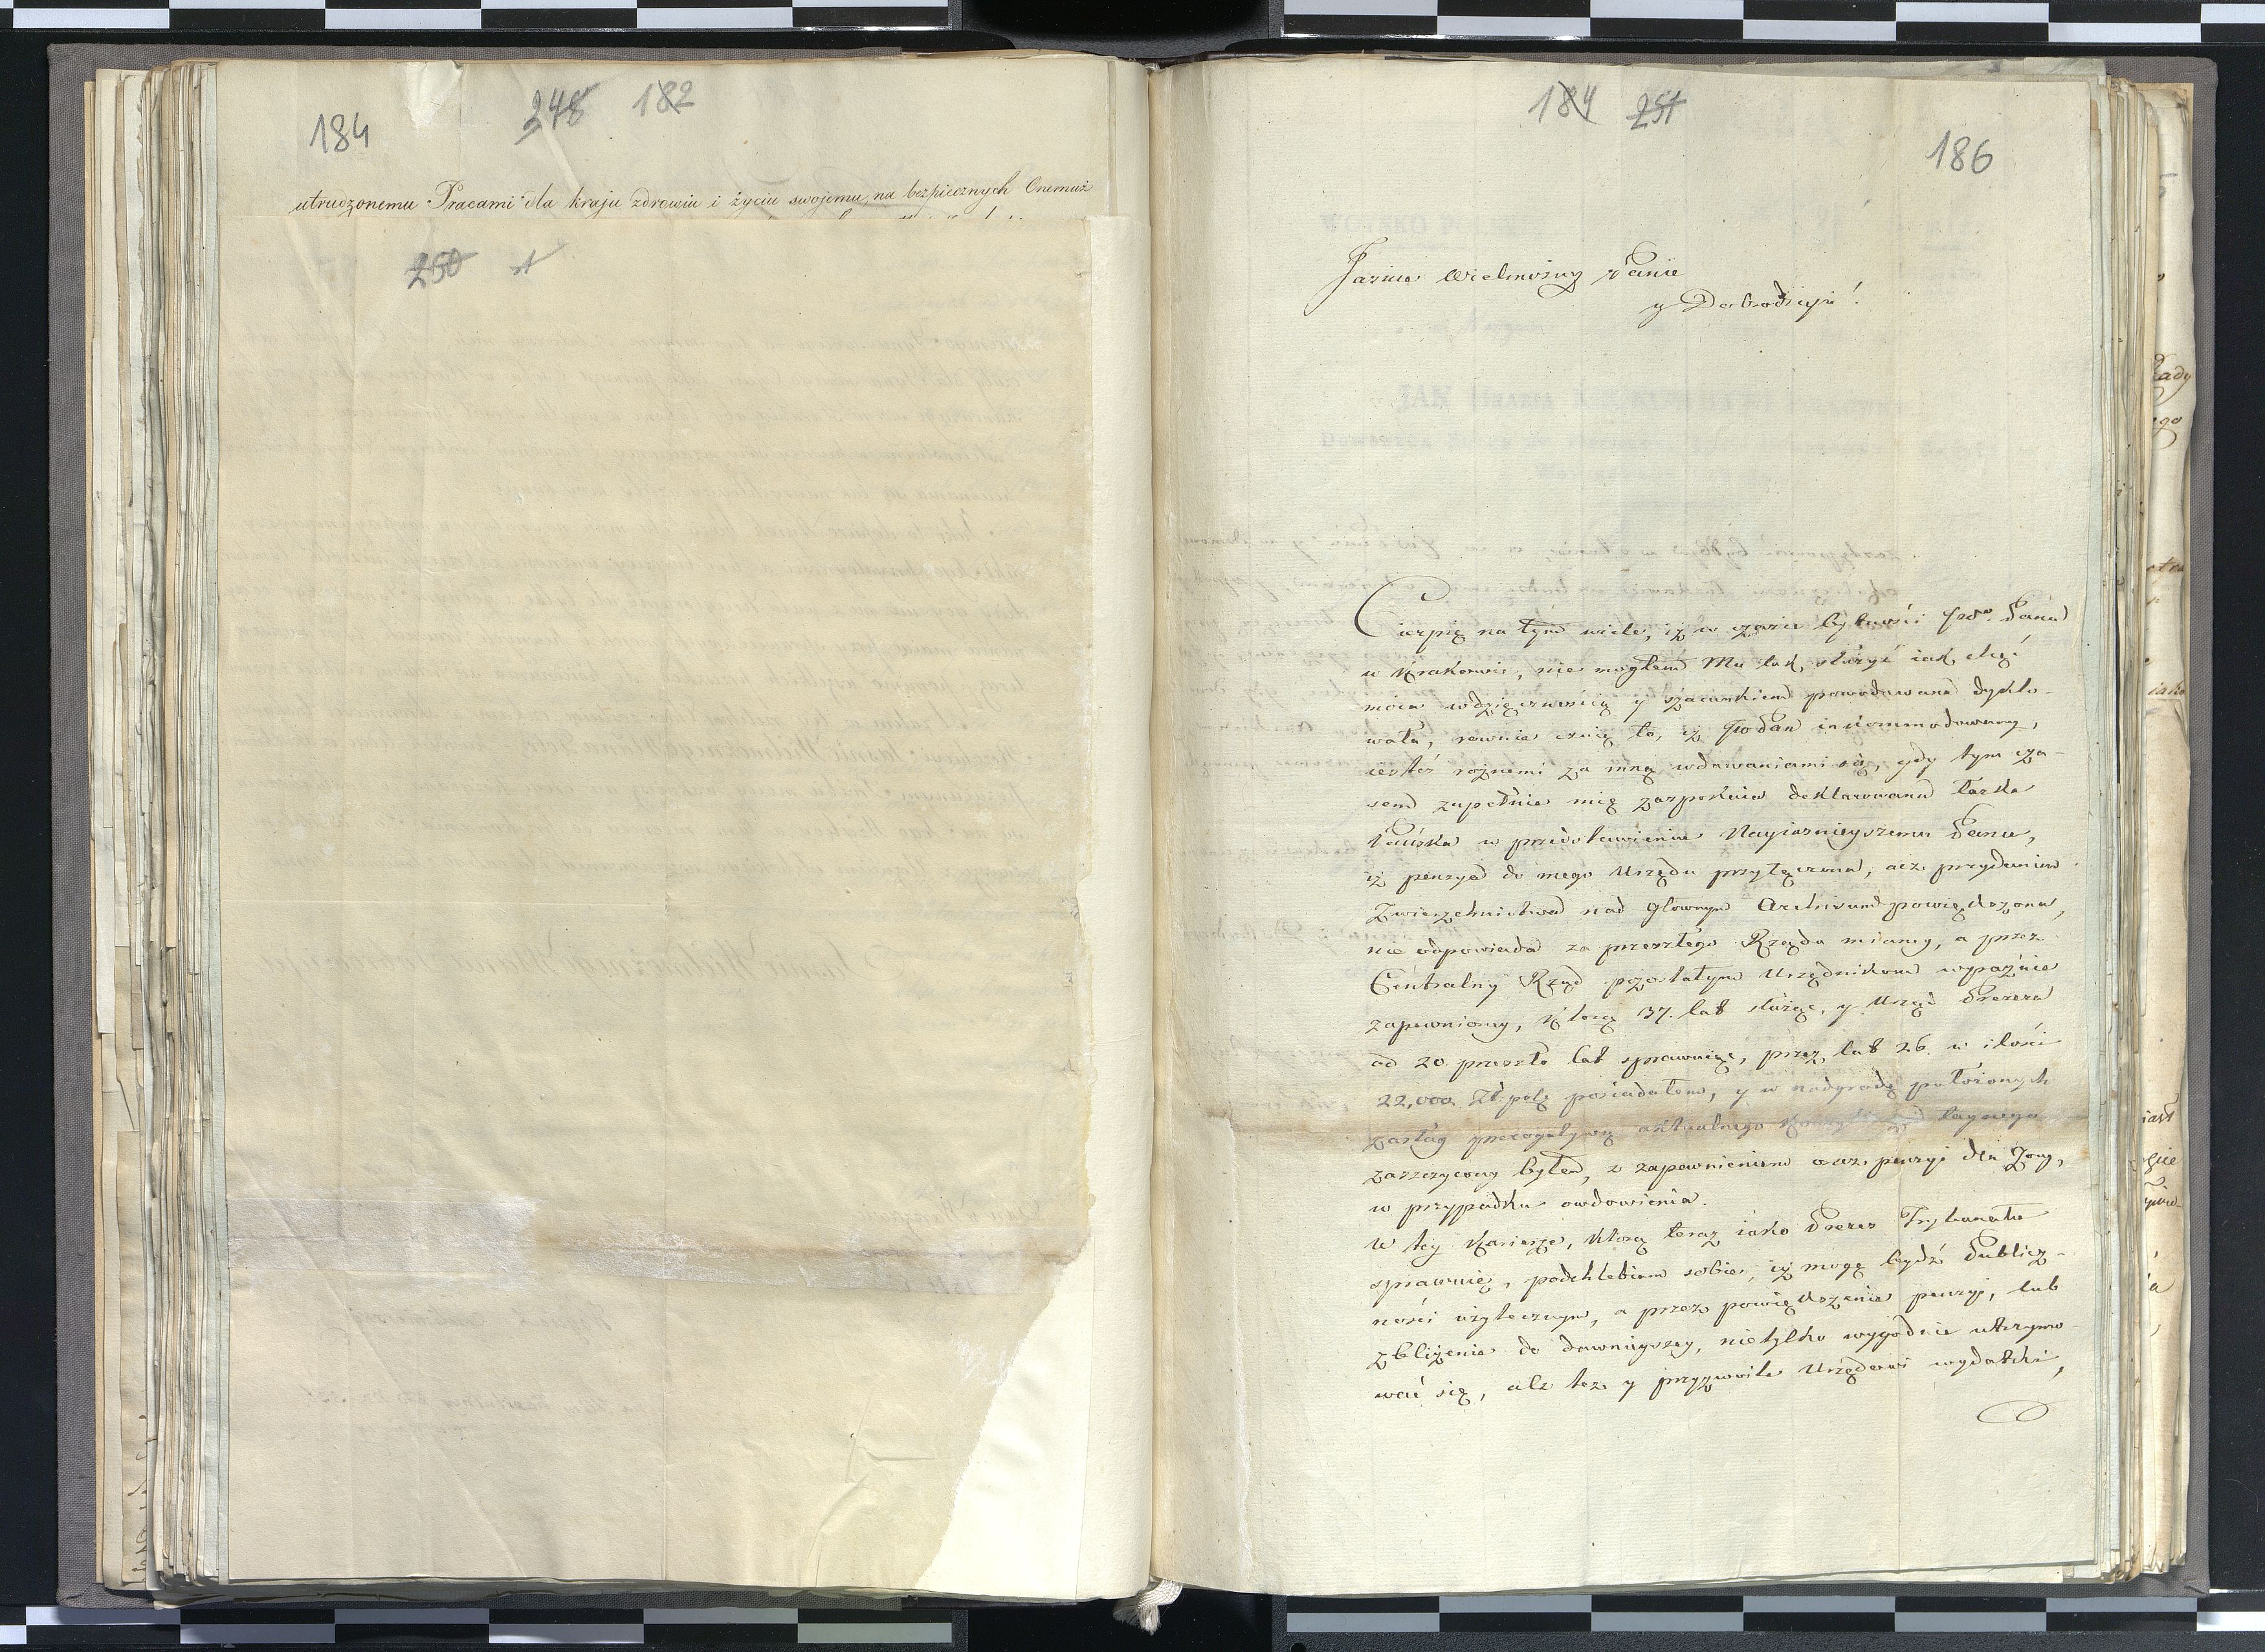 184 248 182
utrudzonemu Pracami dla kraju zdrowiu i życiu swojemu, na bezpiecznych Onemuż
250
184 251
186
Jasnie Wielmożny Panie
y Dobrodzieju!
Cierpię na tym wiele, iż w czasie bytności JWo. Pana
w Krakowie, nie mogłem Mu tak służyć iak chęć
moia wdzięcznością y szacunkiem powodowana dykto-
wała, rownie czuię to, iż JWo Pan inkommodowany,
iesteś rożnemi za mną wdawaniami się, gdy tym cza-
sem zupełnie mię zaspokaia deklarowana łaska
Pańska w przedstawieniu Nayiasnieyszemu Panu,
iż pensya do mego Urzędu przyłączona, acz przydaniem
Zwierzchnictwa nad głownym Archivum powiększona,
nie odpowiada za przeszłego Rządu mianey, a przez
Centralny Rząd pozostałym Urzędnikom wyraźnie
zapewnioney, ktorą 37. lat służąc, y Urząd Prezesa
od 20 przeszło lat sprawuiąc, przez lat 26. w ilości
22,000 Zł: pol: posiadałem, y w nadgrodę położonych
zasług prerogatywą aktualnego taynego
zaszczycony byłem, z zapewnieniem oraz pensyi dla Żony,
w przypadku owdowienia.
W tey Karierze, ktorą teraz iako Prezes Trybunału
sprawuię, podchlebiam sobie, iż mogę bydź Publicz-
ności użytecznym, a przez powiększenie pensyi, lub
zbliżenie do dawnieyszey, nietylko wygodnie utrzymo-
wać się, ale też y przyzwoite Urzędowi wydatki,